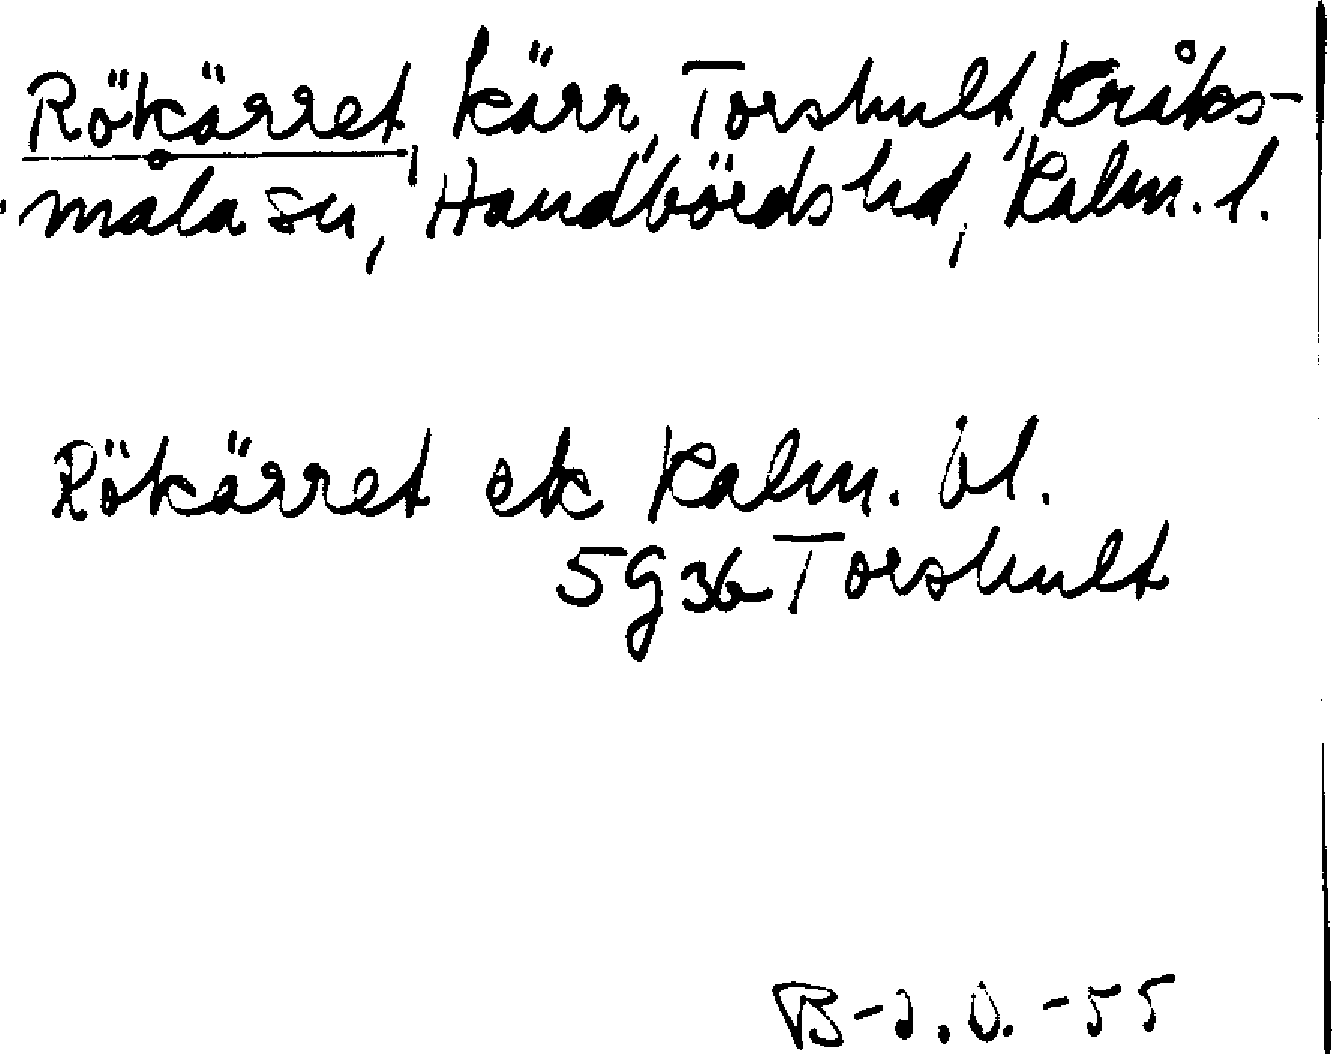 Rökärret, kärr, Torshult, Kråks-
måla sn, Handbörds hd, Kalm. l.
Rökärret ek Kalm. öl.
5g36 Torshult
B-J.Ö. -55